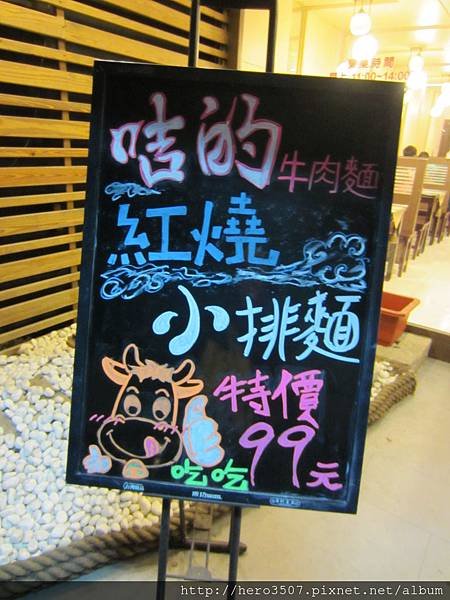 營業時間
11:00~14:00
咭的牛肉麵
紅燒
小排麵
特價
99元
吃吃
http://hero3507.pixnet.net/album